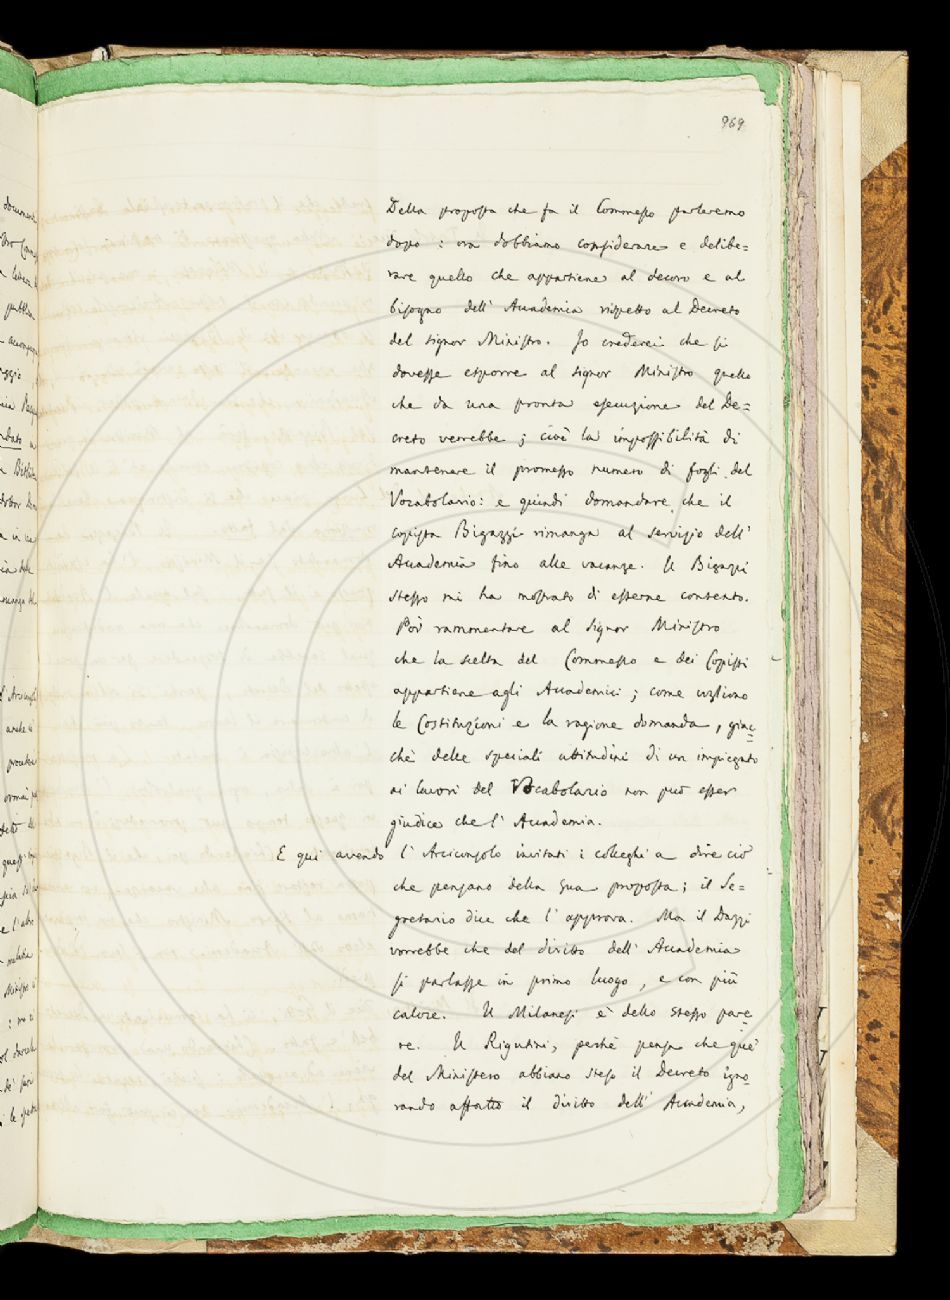 969
Della proposta che fa il Commesso parleremo
dopo: ora dobbiamo considerare e delibe=
rare quello che appartiene al decoro e al
bisogno dell' Accademia rispetto al Decreto
del signor Ministro. Io crederei che si
dovesse esporre al signor Ministro quello
che da una pronta esecuzione del De=
creto verrebbe; cioè la impossibilità di
mantenere il promesso numero di fogli del
Vocabolario: e quindi domandare che il
copista Bigazzi rimanga al servizio dell'
Accademia fino alle vacanze. Il Bigazzi
stesso mi ha mostrato di esserne contento.
Poi rammentare al signor Ministro
che la scelta del Commesso e dei Copisti
appartiene agli Accademici; come vogliono
le Costituzioni e la ragione domanda, giac=
chè delle speciali attitudini di un impiegato
ai lavori del Vocabolario non può esser
giudice che l' Accademia.
E qui avendo l' Arciconsolo invitati i colleghi a dire ciò
che pensano della sua proposta; il Se=
gretario dice che l' approva. Ma il Dazzi
vorrebbe che del diritto dell' Accademia
si parlasse in primo luogo, e con più
calore. Il Milanesi è dello stesso pare=
re. Il Rigutini, perchè pensa che que'
del Ministero abbiano steso il Decreto igno=
rando affatto il diritto dell' Accademia,